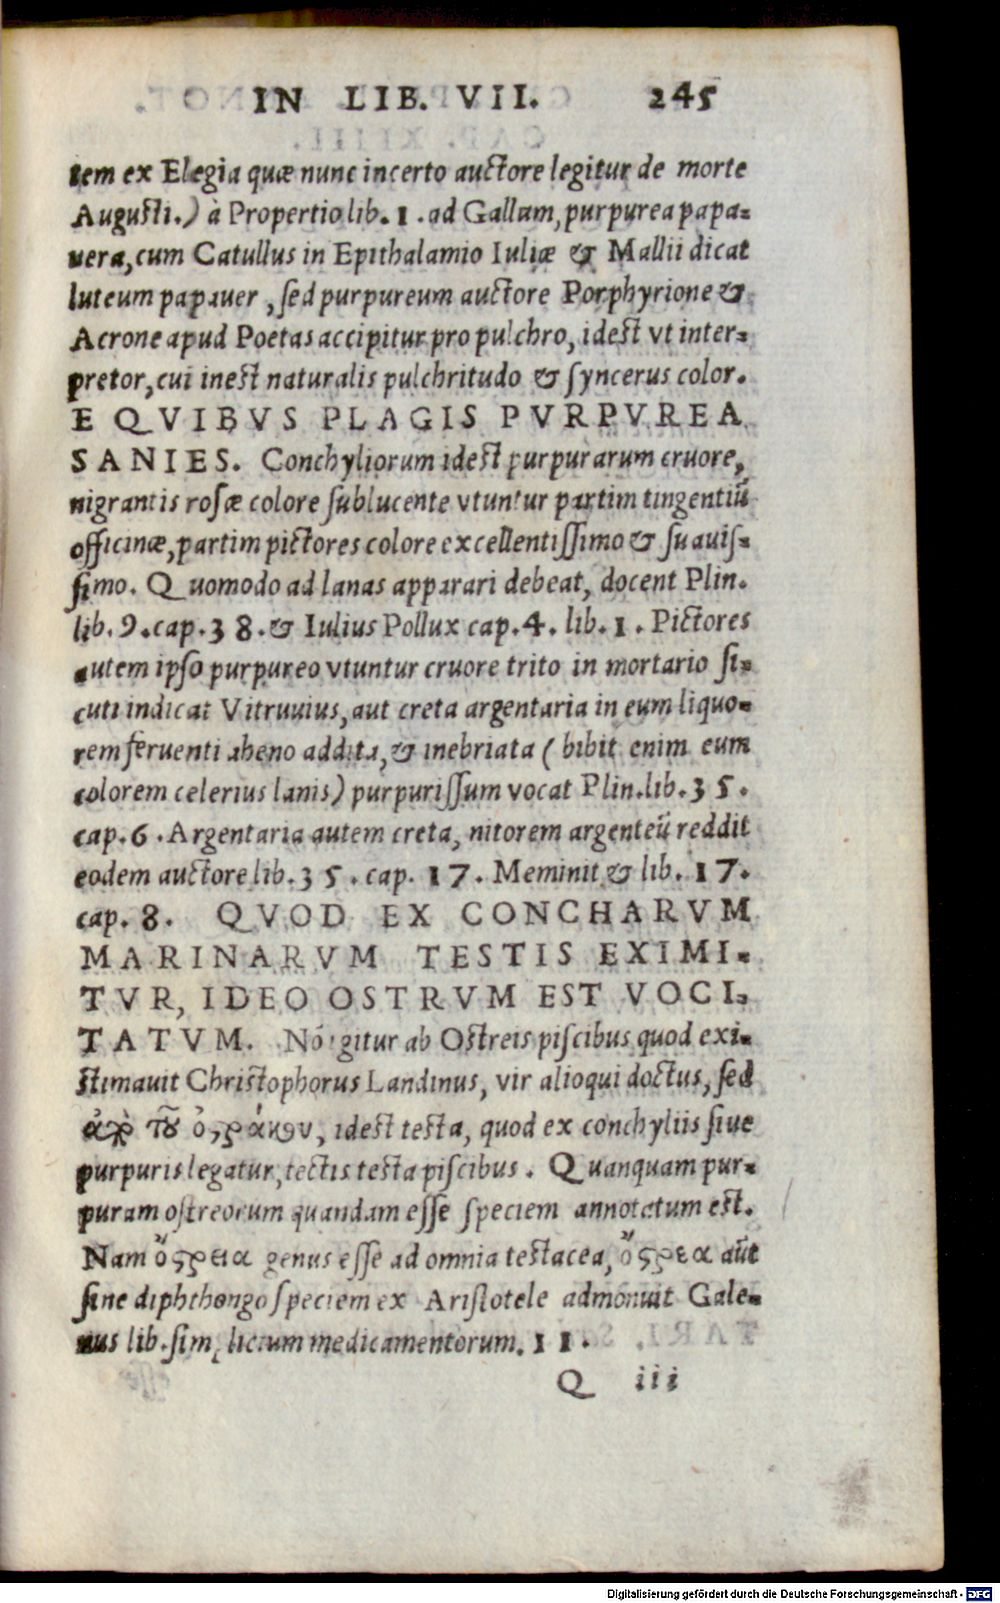 IN LIB. VII. 245
tem ex Elegia quæ nunc incerto auctore legitur de morte
Augusti.) à Propertio lib. 1. ad Gallum, purpurea papa-
uera, cum Catullus in Epithalamio Iuliæ & Mallii dicat
luteum papauer, sed purpureum auctore Porphyrione &
Acrone apud Poetas accipitur pro pulchro, idest vt inter-
pretor, cui inest naturalis pulchritudo & syncerus color.
E QVIBVS PLAGIS PVRPVREA
SANIES. Conchyliorum idest purpurarum cruore,
nigrantis rosæ colore sublucente vtuntur partim tingentiū
officinæ, partim pictores colore excellentissimo & suauis-
simo. Quomodo ad lanas apparari debeat, docent Plin.
lib. 9. cap. 38. & Iulius Pollux cap. 4. lib. 1. Pictores
autem ipso purpureo vtuntur cruore trito in mortario si-
cuti indicat Vitruuius, aut creta argentaria in eum liquo-
rem feruenti aheno addita, & inebriata (bibit enim eum
colorem celerius lanis) purpurissum vocat Plin. lib. 35.
cap. 6. Argentaria autem creta, nitorem argenteū reddit
eodem auctore lib. 35. cap. 17. Meminit & lib. 17.
cap. 8. QVOD EX CONCHARVM
MARINARVM TESTIS EXIMI-
TVR, IDEO OSTRVM EST VOCI-
TATVM. Nō igitur ab Ostreis piscibus quod exi-
stimauit Christophorus Landinus, vir alioqui doctus, sed
ἀπὸ τοῦ ὀστράκου, idest testa, quod ex conchyliis siue
purpuris legatur, tectis testa piscibus. Quanquam pur-
puram ostreorum quandam esse speciem annotatum est.
Nam ὄστρεια genus esse ad omnia testacea, ὄστρεα aūt
sine diphthongo speciem ex Aristotele admonuit Gale-
nus lib. simplicium medicamentorum. 11.
Q iii
Digitalisierung gefördert durch die Deutsche Forschungsgemeinschaft - DFG